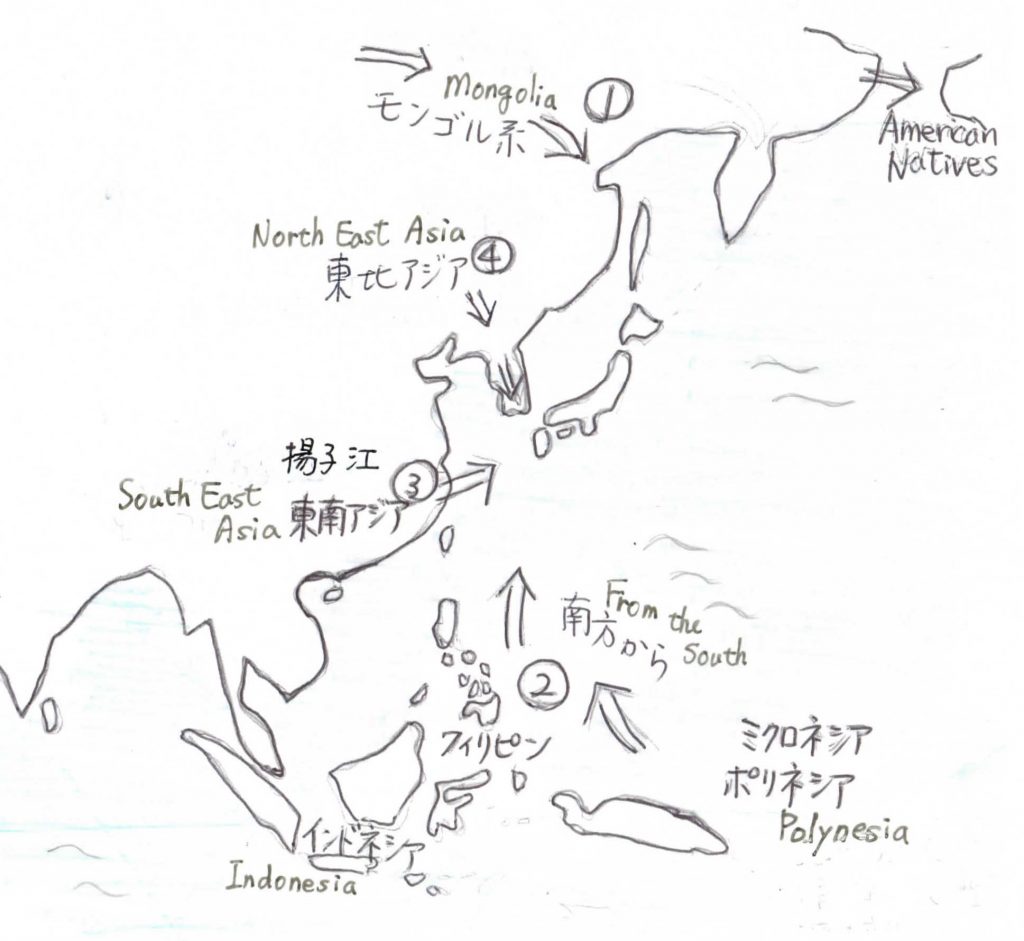 Mongolia
モンゴル系
①
American
Natives
North East Asia
東北アジア
④
揚子江
③
South East
Asia
東南アジア
From the
South
南方から
②
フィリピン
ミクロネシア
ポリネシア
Polynesia
インドネシア
Indonesia